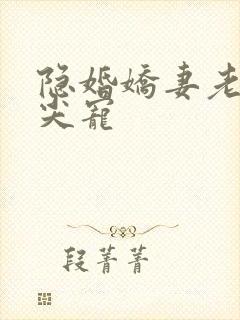 隐婚娇妻老
尖宠
段菁菁